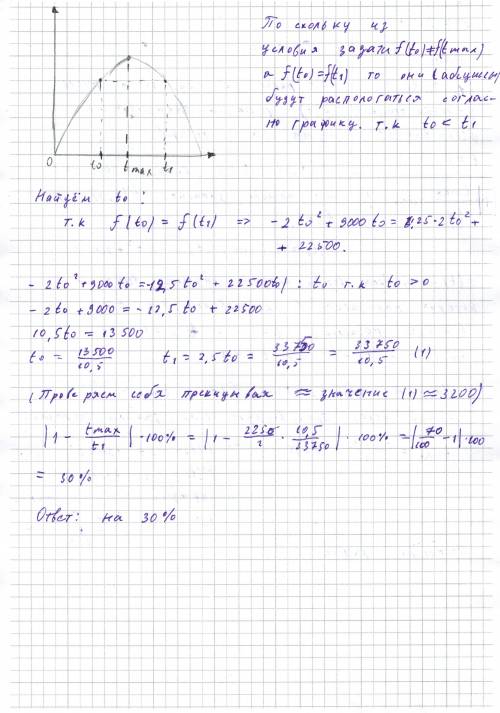 По скольку из
условия задачи f(t0)≠f(tmax)
а f(t0)=f(t1) то они (абциссы)
будут распологаться соглас-
но графику. т.к t0 < t1
0 t0 tmax t1
Найдём t0:
т.к f(t0) = f(t1) => -2t0² + 9000t0 = 2,25·2t0² +
+ 22500.
-2t0² + 9000t0 = -12,5t0² + 22500t0 | : t0 т.к t0 > 0
-2t0 + 9000 = -12,5t0 + 22500
10,5t0 = 13500
t0 = 13500/10,5 t1 = 2,5t0 = 33750/10,5 = 33750/10,5 (1)
(Проверяем себя прекидывая ≈ значение (1) ≈ 3200)
|1 - tmax/t1|·100% = |1 - 2250/1 · 10,5/33750|·100% = |70/100 - 1|·100
= 30%
Ответ: на 30%